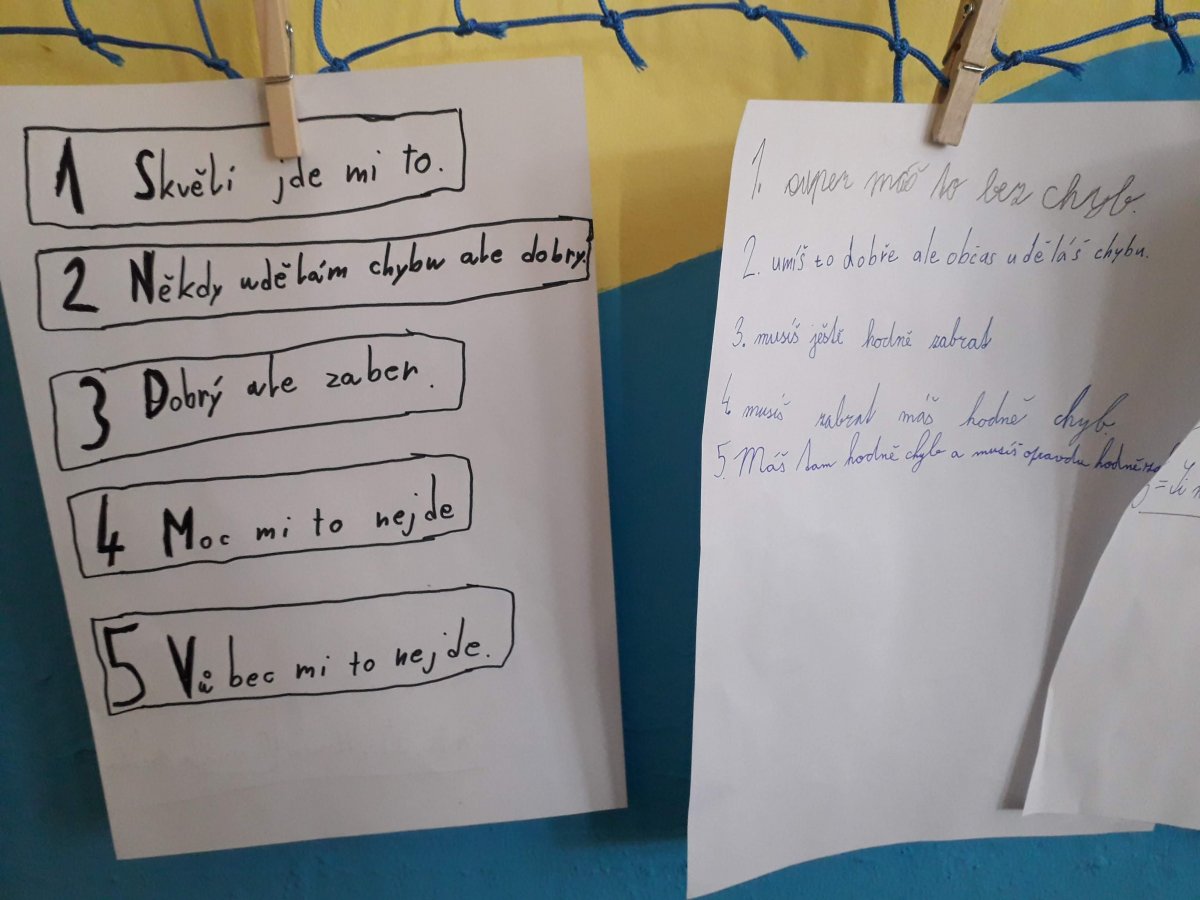 1 Skvělí jde mi to.
2 Někdy udělám chybu ale dobrý.
3 Dobrý ale zaber.
4 Moc mi to nejde
5 Vůbec mi to nejde.
1. super máš to bez chyb.
2. umíš to dobře ale občas uděláš chybu.
3. musíš ještě hodně zabrat
4 musíš zabrat máš hodně chyb
5. Máš tam hodně chyb a musíš opravdu hodně